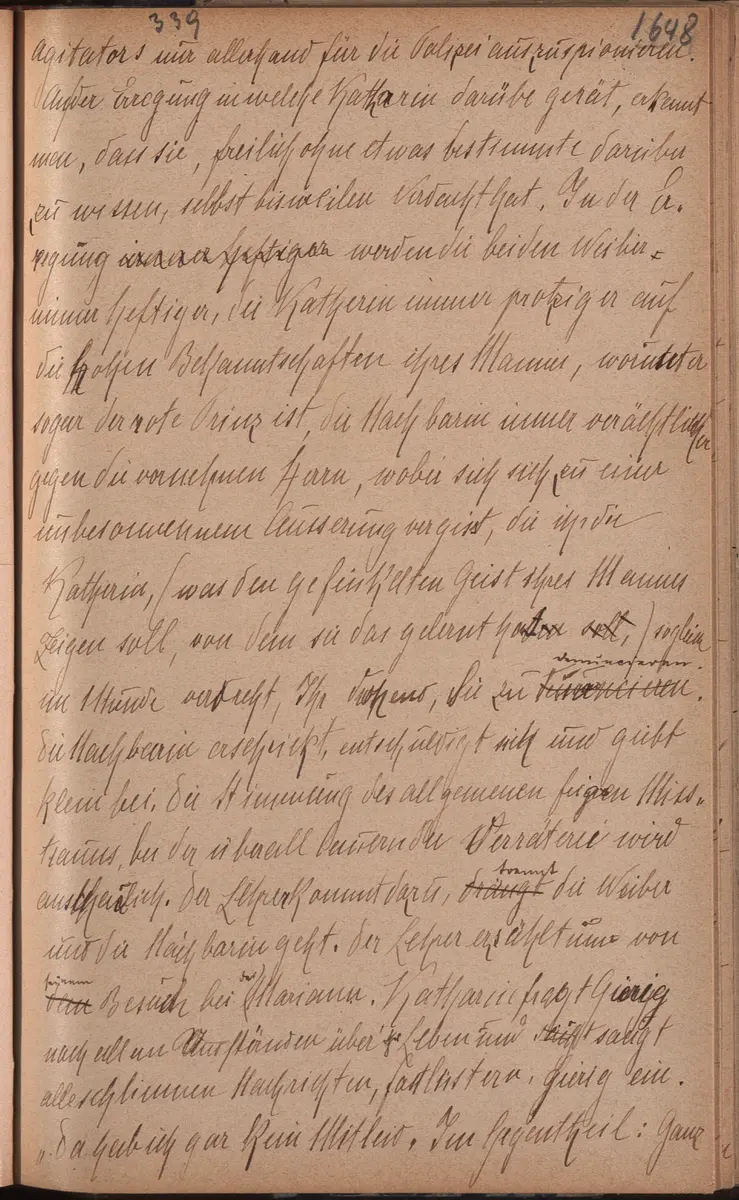 339 1648
agitators nur allerhand für die Polizei auszuspionieren.
An der Eregung in welche Katharin darübe gerät, erkennt
man, dass sie, freilich ohne etwas bestimmte darüber
zu wissen, selbst bisweilen Verdacht hat. In der Er-
regung immer heftiger werden die beiden Weiber
immer heftiger, die Katherin immer protziger auf
die hohen Bekanntschaften ihres Mannes, worunter
sogar der rote Prinz ist, die Nachbarin immer verächtlicher
gegen die vornehmen Herrn, wobei sich sich zu einer
unbesonnennem Äusserung vergisst, die ihr die
Katherin, (was den gefinkelten Geist ihres Mannes
zeigen soll, von dem sie das gelernt hat soll,) sogleich
im Munde verdreht, Ihr drohend, Sie zu denuncieren.
die Nachbarin erschrickt, entschuldigt sich und giebt
klein bei. die Stimmung des allgemenen feigen Miss-
trauns, bei der überall lauernden Verräterei wird
anschaulich. der Lehrer kommt dazu, trennt die Weiber
und die Nachbarin geht. der Lehrer erzählt nun von
seinem Besuch bei der Mariann. Katharin fragt Gierig
nach allen Umständen über ihr Leben und saugt
alle schlimmen Nachrichten, Gierig ein.
„Da hab ich gar kein Mitleid. Im Gegentheil: Ganz